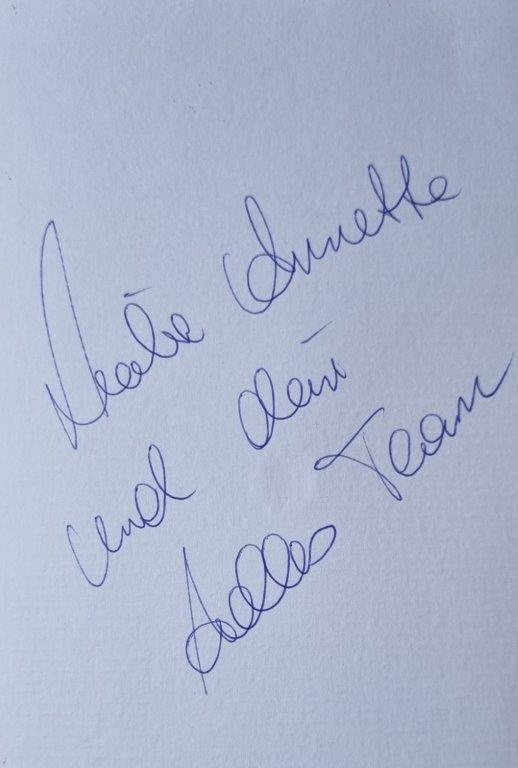 Liebe Annette
und dein Team